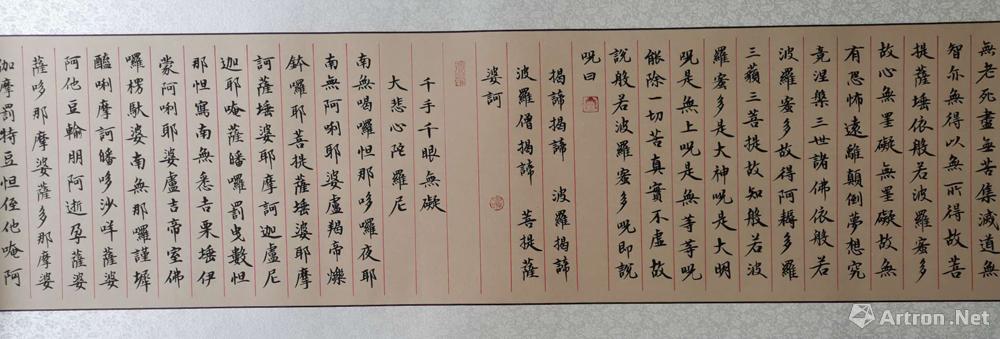 無老死盡無苦集滅道無
智亦無得以無所得故菩
提薩埵依般若波羅蜜多
故心無罣礙無罣礙故無
有恐怖遠離顛倒夢想究
竟涅槃三世諸佛依般若
波羅蜜多故得阿耨多羅
三藐三菩提故知般若波
羅蜜多是大神呪是大明
呪是無上呪是無等等呪
能除一切苦真實不虛故
說般若波羅蜜多呪即說
呪曰
揭諦揭諦 波羅揭諦
波羅僧揭諦 菩提薩
婆訶
千手千眼無礙
大悲心陀羅尼
南無喝囉怛那哆囉夜耶
南無阿唎耶婆盧羯帝爍
鉗囉耶菩提薩埵婆耶摩
訶薩埵婆耶摩訶迦盧尼
迦耶唵薩皤囉罰曳數怛
那怛寫南無悉吉栗埵伊
蒙阿唎耶婆盧吉帝室佛
囉楞馱婆南無那囉謹墀
醯唎摩訶皤哆沙咩薩婆
阿他豆輸朋阿逝孕薩婆
薩哆那摩婆薩多那摩婆
伽摩罰特豆怛侄他唵阿
Artron.Net